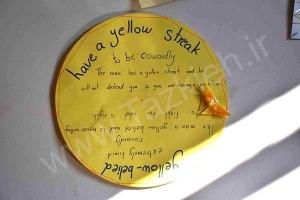 have a yellow streak
to be cowardly
The man has a yellow streak and he
will not defend you if you are
yellow-belied
extremely timid
cowardly
The man is yellow belied and he never
to fight for what is right
www.Tazkieh.ir